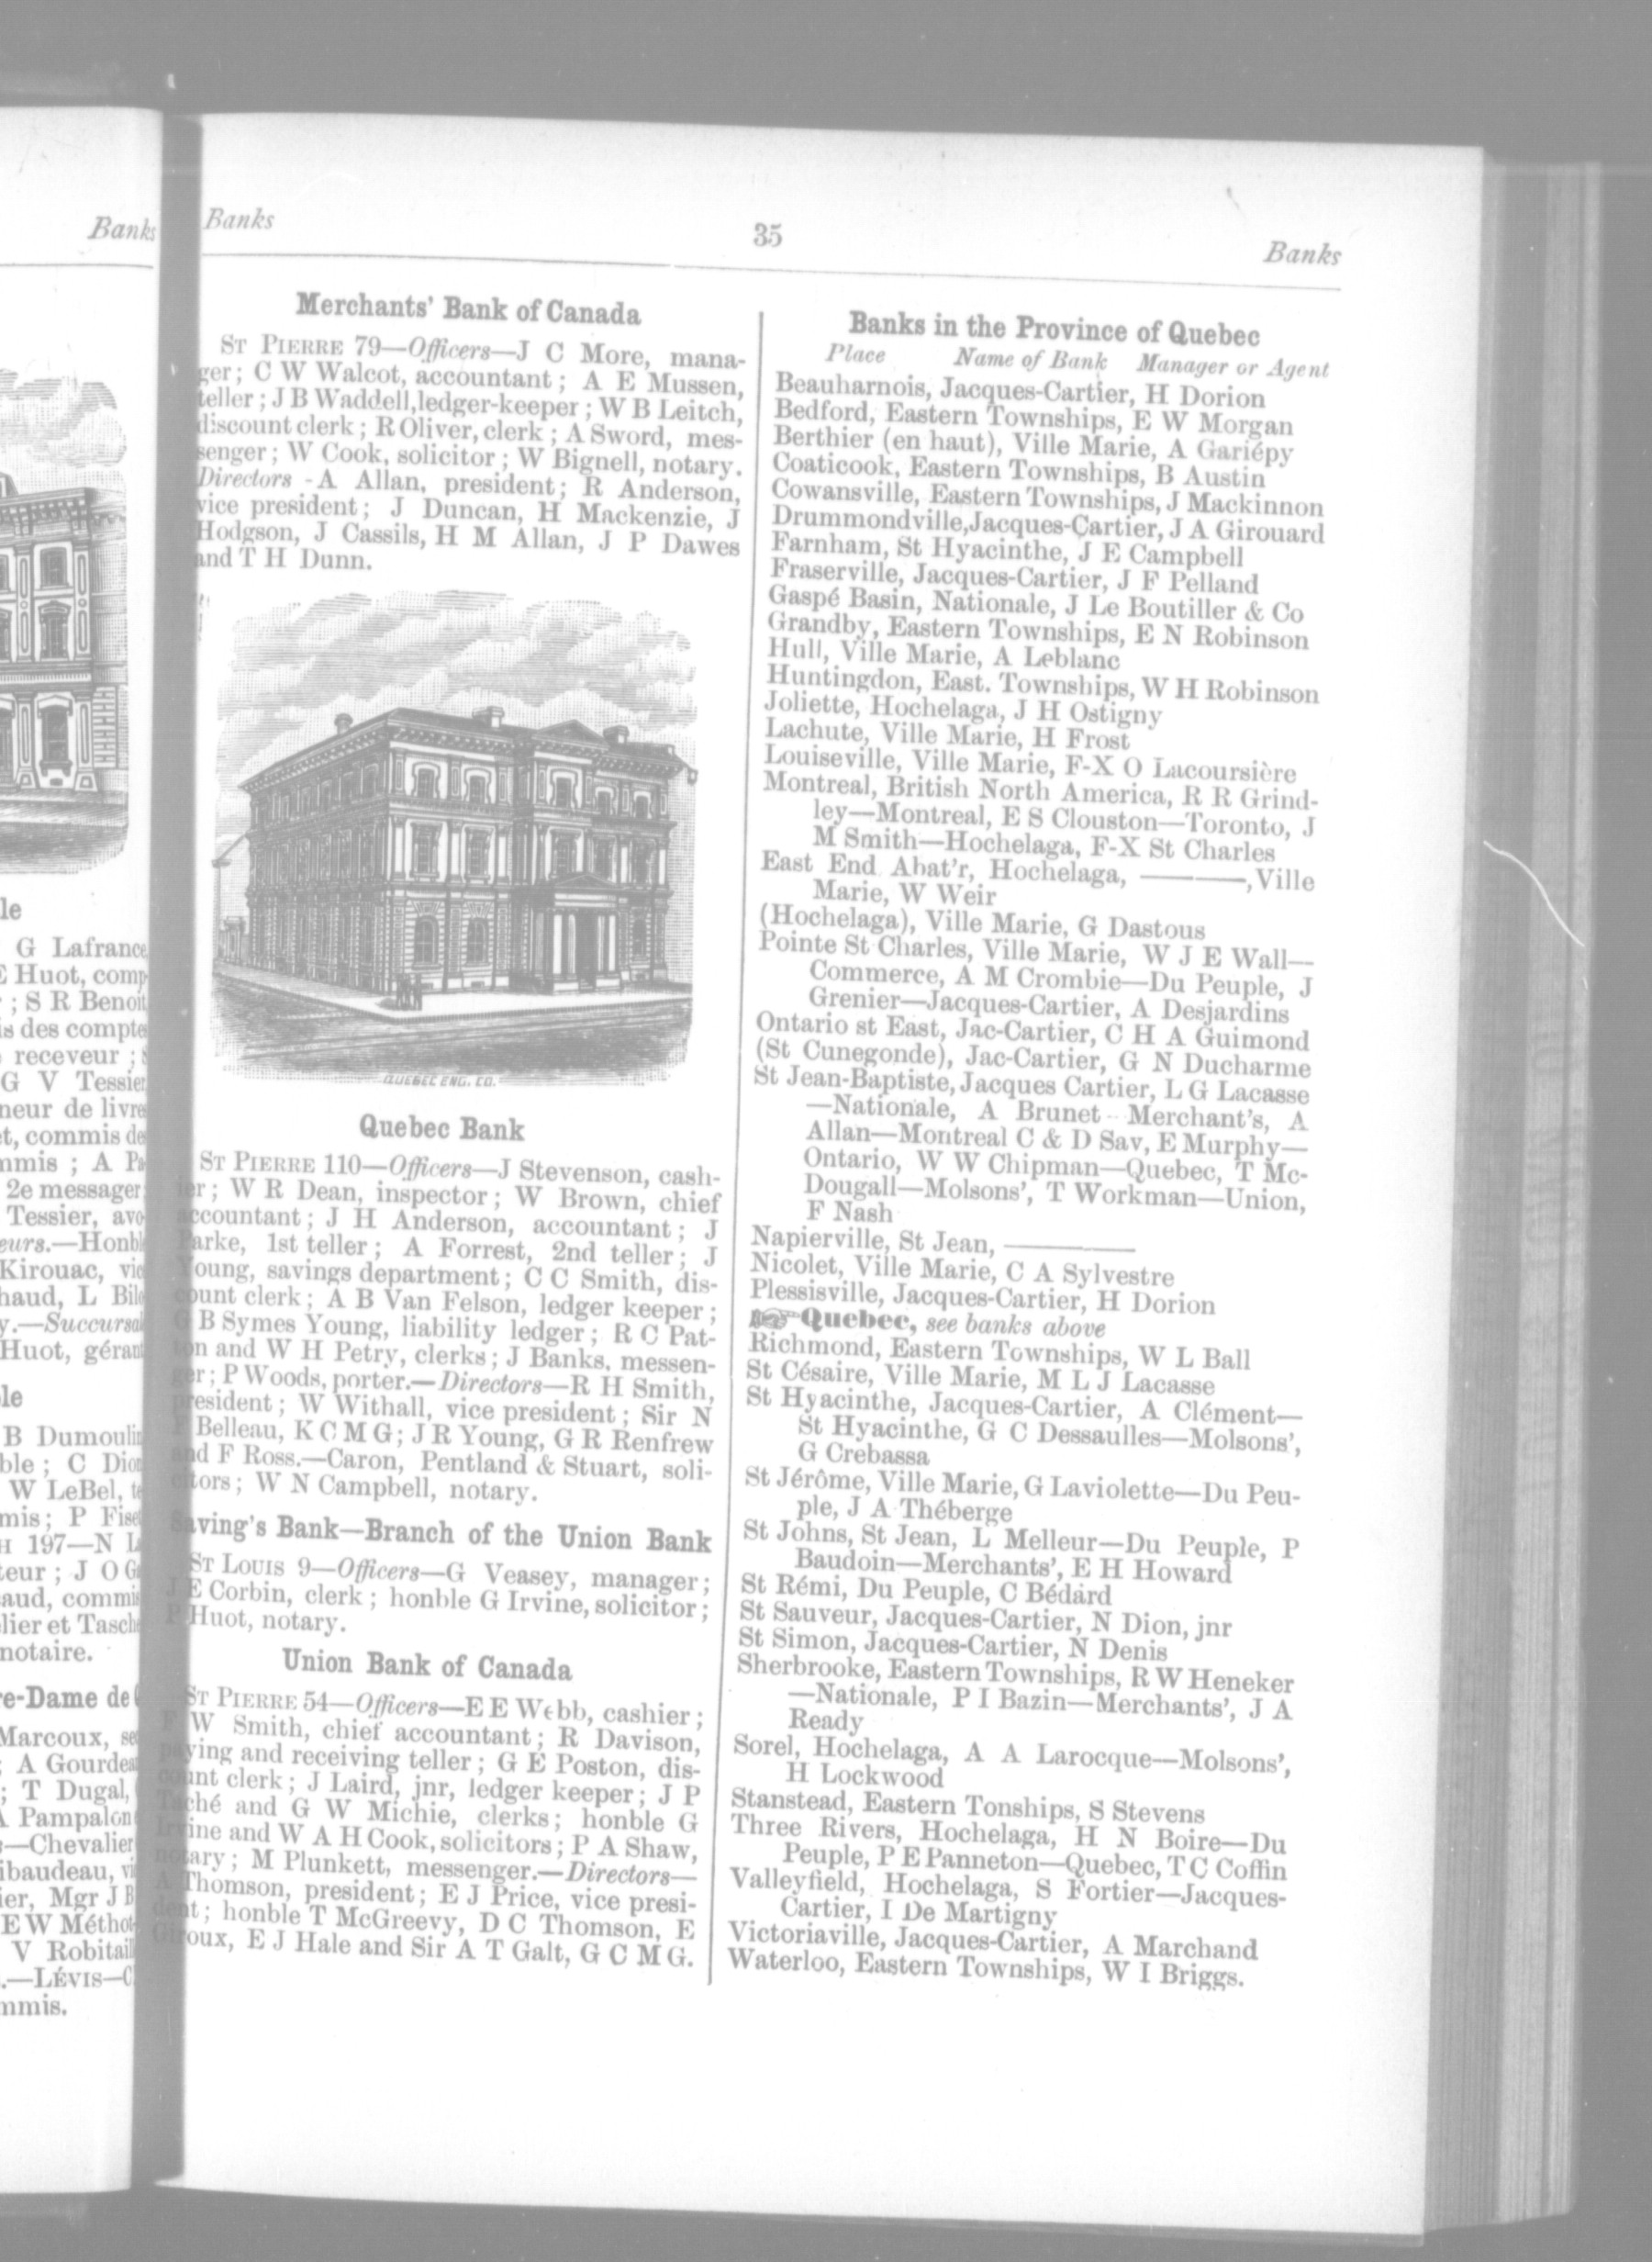 Banks
le
G Lafrance
E Huot, comp
; S R Benoit
is des compte
receveur ;
G V Tessier
neur de livre
et, commis de
mmis ; A Pa
2e messager
Tessier, avo
eurs.—Honbl
Kirouac, vic
haud, L Bilo
y.—Succursal
Huot, gérant
le
B Dumoulin
ble ; C Dion
W LeBel, te
mis; P Fiset
H 197—N L
teur ; J O G
aud, commis
lier et Tasch
notaire.
re-Dame de
Marcoux, se
; A Gourdea
; T Dugal,
A Pampalon
—Chevalier
ibaudeau, vi
ier, Mgr J B
E W Méthot
V Robitaill
.—LÉVIS—C
mmis.
Banks 35 Banks
Merchants' Bank of Canada
ST PIERRE 79—Officers—J C More, mana-
ger; C W Walcot, accountant; A E Mussen,
teller; J B Waddell, ledger-keeper; W B Leitch,
discount clerk; R Oliver, clerk; A Sword, mes-
senger; W Cook, solicitor; W Bignell, notary.
Directors - A Allan, president; R Anderson,
vice president; J Duncan, H Mackenzie, J
Hodgson, J Cassils, H M Allan, J P Dawes
and T H Dunn.
QUEBEC ENG. CO.
Quebec Bank
ST PIERRE 110—Officers—J Stevenson, cash-
ier; W R Dean, inspector; W Brown, chief
accountant; J H Anderson, accountant; J
Parke, 1st teller; A Forrest, 2nd teller; J
Young, savings department; C C Smith, dis-
count clerk; A B Van Felson, ledger keeper;
G B Symes Young, liability ledger; R C Pat-
ton and W H Petry, clerks; J Banks, messen-
ger; P Woods, porter.—Directors—R H Smith,
president; W Withall, vice president; Sir N
F Belleau, K C M G; J R Young, G R Renfrew
and F Ross.—Caron, Pentland & Stuart, soli-
citors; W N Campbell, notary.
Saving's Bank—Branch of the Union Bank
ST LOUIS 9—Officers—G Veasey, manager;
J E Corbin, clerk; honble G Irvine, solicitor;
P Huot, notary.
Union Bank of Canada
ST PIERRE 54—Officers—E E Webb, cashier;
F W Smith, chief accountant; R Davison,
paying and receiving teller; G E Poston, dis-
count clerk; J Laird, jnr, ledger keeper; J P
Taché and G W Michie, clerks; honble G
Irvine and W A H Cook, solicitors; P A Shaw,
notary; M Plunkett, messenger.—Directors—
A Thomson, president; E J Price, vice presi-
dent; honble T McGreevy, D C Thomson, E
Giroux, E J Hale and Sir A T Galt, G C M G.
Banks in the Province of Quebec
Place Name of Bank Manager or Agent
Beauharnois, Jacques-Cartier, H Dorion
Bedford, Eastern Townships, E W Morgan
Berthier (en haut), Ville Marie, A Gariépy
Coaticook, Eastern Townships, B Austin
Cowansville, Eastern Townships, J Mackinnon
Drummondville, Jacques-Cartier, J A Girouard
Farnham, St Hyacinthe, J E Campbell
Fraserville, Jacques-Cartier, J F Pelland
Gaspé Basin, Nationale, J Le Boutiller & Co
Grandby, Eastern Townships, E N Robinson
Hull, Ville Marie, A Leblanc
Huntingdon, East. Townships, W H Robinson
Joliette, Hochelaga, J H Ostigny
Lachute, Ville Marie, H Frost
Louiseville, Ville Marie, F-X O Lacoursière
Montreal, British North America, R R Grind-
ley—Montreal, E S Clouston—Toronto, J
M Smith—Hochelaga, F-X St Charles
East End Abat'r, Hochelaga, ———, Ville
Marie, W Weir
(Hochelaga), Ville Marie, G Dastous
Pointe St Charles, Ville Marie, W J E Wall—
Commerce, A M Crombie—Du Peuple, J
Grenier—Jacques-Cartier, A Desjardins
Ontario st East, Jac-Cartier, C H A Guimond
(St Cunegonde), Jac-Cartier, G N Ducharme
St Jean-Baptiste, Jacques Cartier, L G Lacasse
—Nationale, A Brunet—Merchant's, A
Allan—Montreal C & D Sav, E Murphy—
Ontario, W W Chipman—Quebec, T Mc-
Dougall—Molsons', T Workman—Union,
F Nash
Napierville, St Jean, ————
Nicolet, Ville Marie, C A Sylvestre
Plessisville, Jacques-Cartier, H Dorion
☞Quebec, see banks above
Richmond, Eastern Townships, W L Ball
St Césaire, Ville Marie, M L J Lacasse
St Hyacinthe, Jacques-Cartier, A Clément—
St Hyacinthe, G C Dessaulles—Molsons',
G Crebassa
St Jérôme, Ville Marie, G Laviolette—Du Peu-
ple, J A Théberge
St Johns, St Jean, L Melleur—Du Peuple, P
Baudoin—Merchants', E H Howard
St Rémi, Du Peuple, C Bédard
St Sauveur, Jacques-Cartier, N Dion, jnr
St Simon, Jacques-Cartier, N Denis
Sherbrooke, Eastern Townships, R W Heneker
—Nationale, P I Bazin—Merchants', J A
Ready
Sorel, Hochelaga, A A Larocque—Molsons',
H Lockwood
Stanstead, Eastern Tonships, S Stevens
Three Rivers, Hochelaga, H N Boire—Du
Peuple, P E Panneton—Quebec, T C Coffin
Valleyfield, Hochelaga, S Fortier—Jacques-
Cartier, I De Martigny
Victoriaville, Jacques-Cartier, A Marchand
Waterloo, Eastern Townships, W I Briggs.